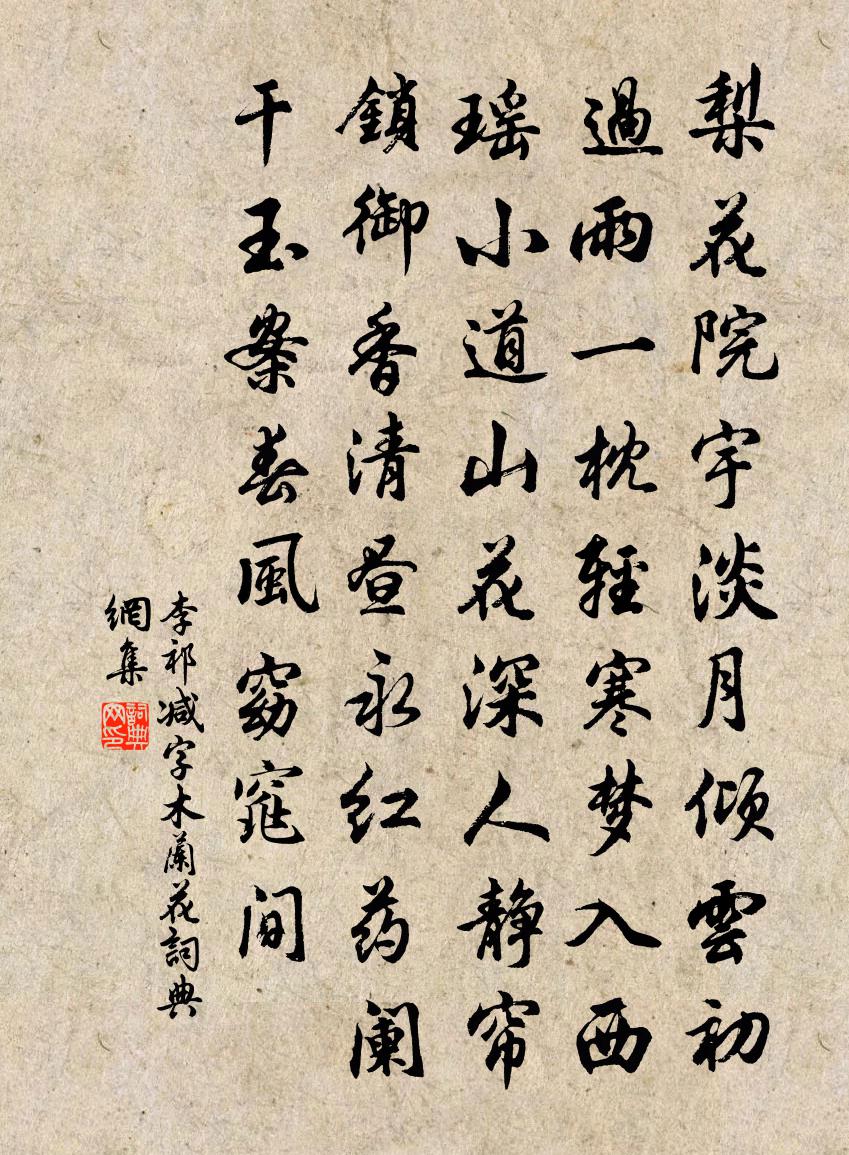 梨花院宇淡月倾雲初
過雨一枕輕寒梦入西
瑶小道山花深人靜帘
鎖御香清昼永红药阑
干玉案春風窈窕间
李祁减字木蘭花詞典
網集
詞典网印